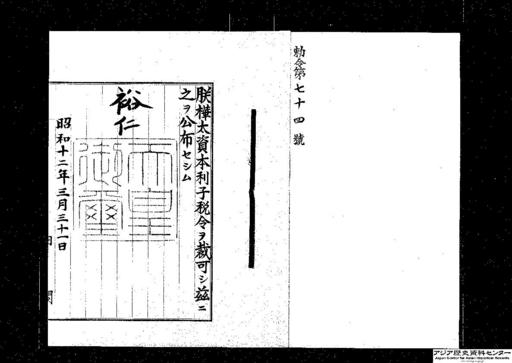 勅令第七十四號
朕樺太資本利子税令ヲ裁可シ茲ニ
之ヲ公布セシム
裕仁
天皇御璽
昭和十二年三月三十一日
アジア歴史資料センター
Japan Center for Asian Historical Records